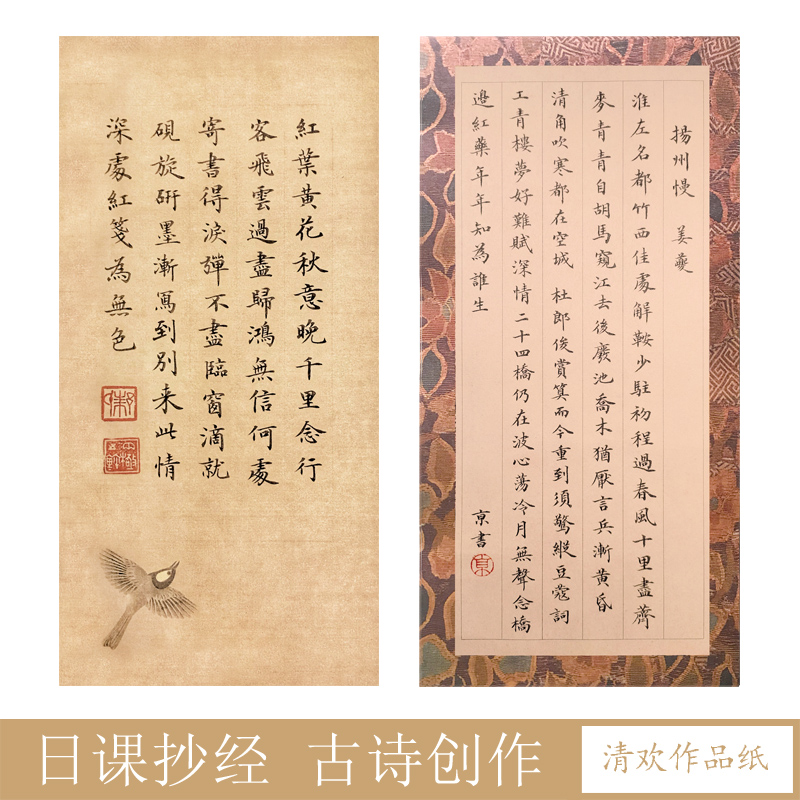 紅葉黃花秋意晚千里念行
客飛雲過盡歸鴻無信何處
寄書得淚彈不盡臨窗滴就
硯旋研墨漸寫到別来此情
深處紅箋為無色
揚州慢 姜夔
淮左名都竹西佳處解鞍少駐初程過春風十里盡薺
麥青青自胡馬窺江去後廢池喬木猶厭言兵漸黃昏
清角吹寒都在空城 杜郎俊賞算而今重到須驚縱豆蔻詞
工青樓夢好難賦深情二十四橋仍在波心蕩冷月無聲念橋
邊紅藥年年知為誰生
亰書
日课抄经 古诗创作
清欢作品纸